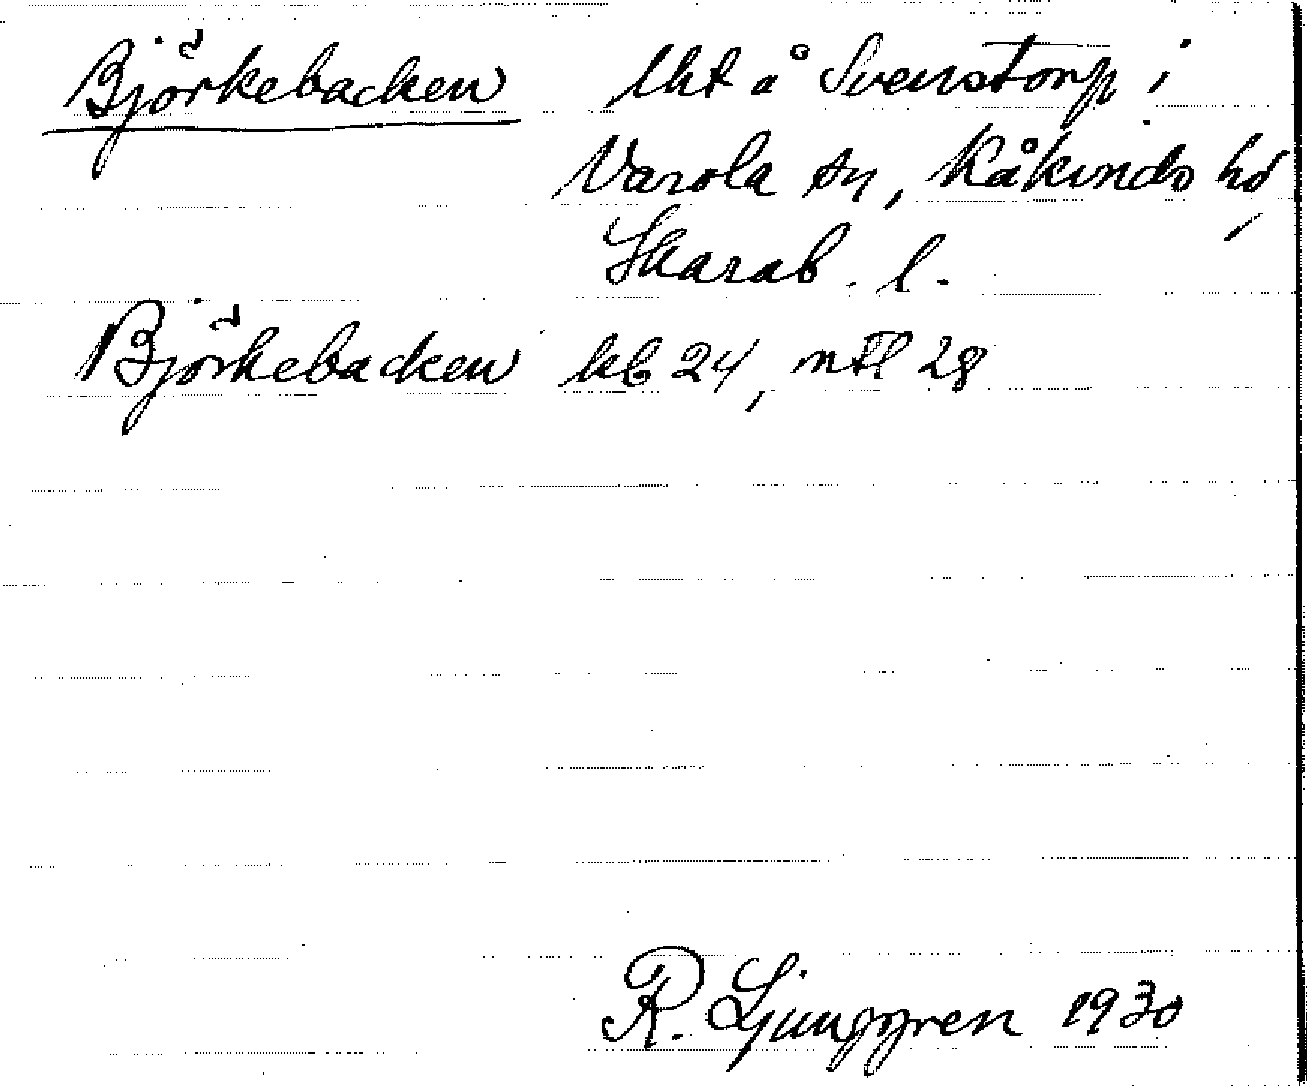 Björkebacken lht å Svenstorp i
Varola sn, Kåkinds hd,
Skarab. l.
Björkebacken kb 24, mtl 28
R. Ljunggren 1930